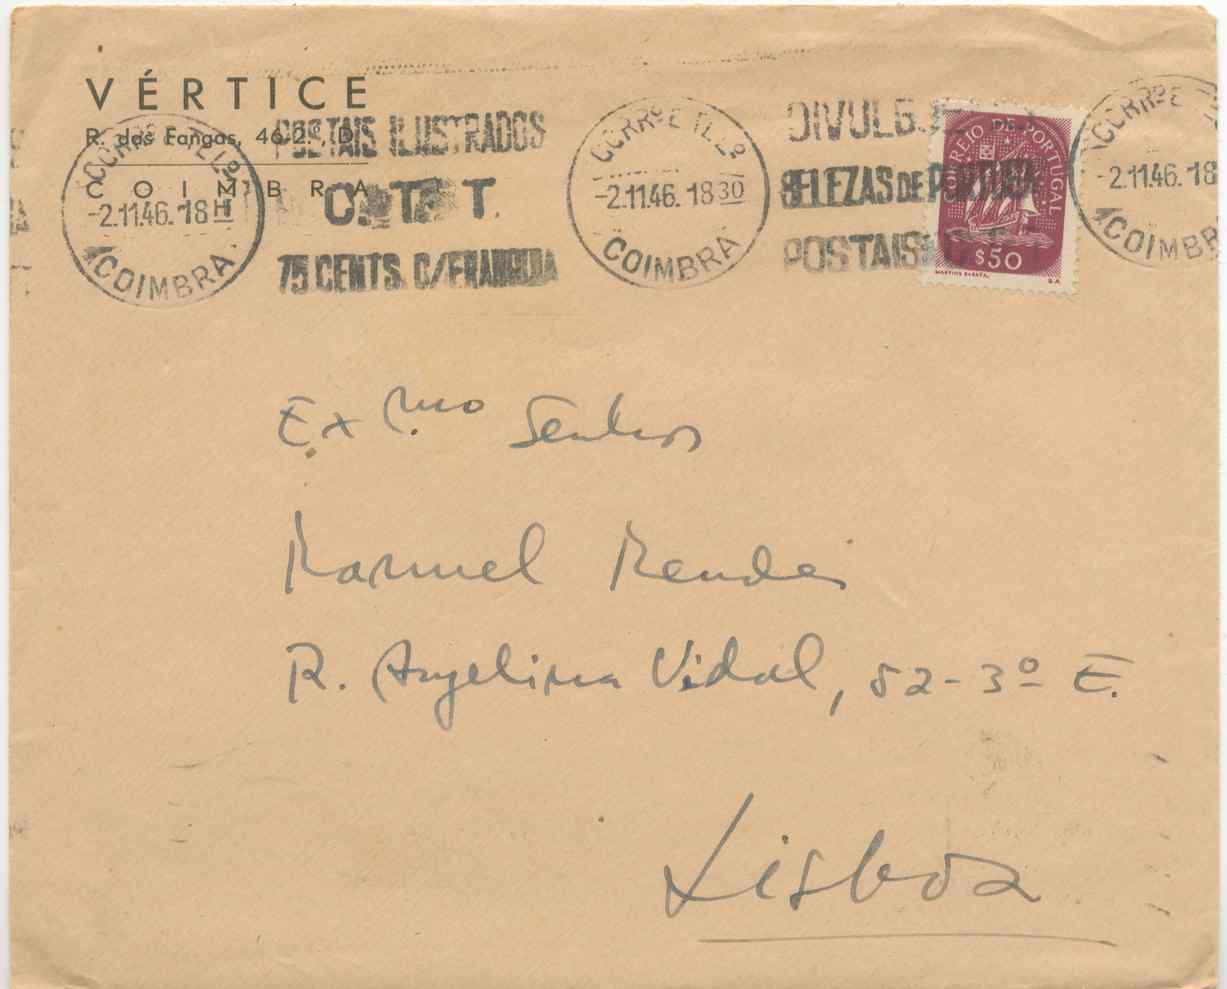 VÉRTICE
R. das Fangas, 46-2.º, D.
COIMBRA
CORR.º E TEL.º
-2.11.46. 18 H
COIMBRA
POSTAIS ILUSTRADOS
C.T.T.
75 CENTS. C/FRANQUIA
CORR.º E TEL.º
-2.11.46. 18 30
COIMBRA
BELEZAS DE PORTUGAL
POSTAIS
CORREIO DE PORTUGAL
$50
MARTINS BARATA.
CORR.º E TE
-2.11.46. 18
COIMBR
Ex.mo Senhor
Manuel Mendes
R. Angelina Vidal, 52-3º E.
Lisboa